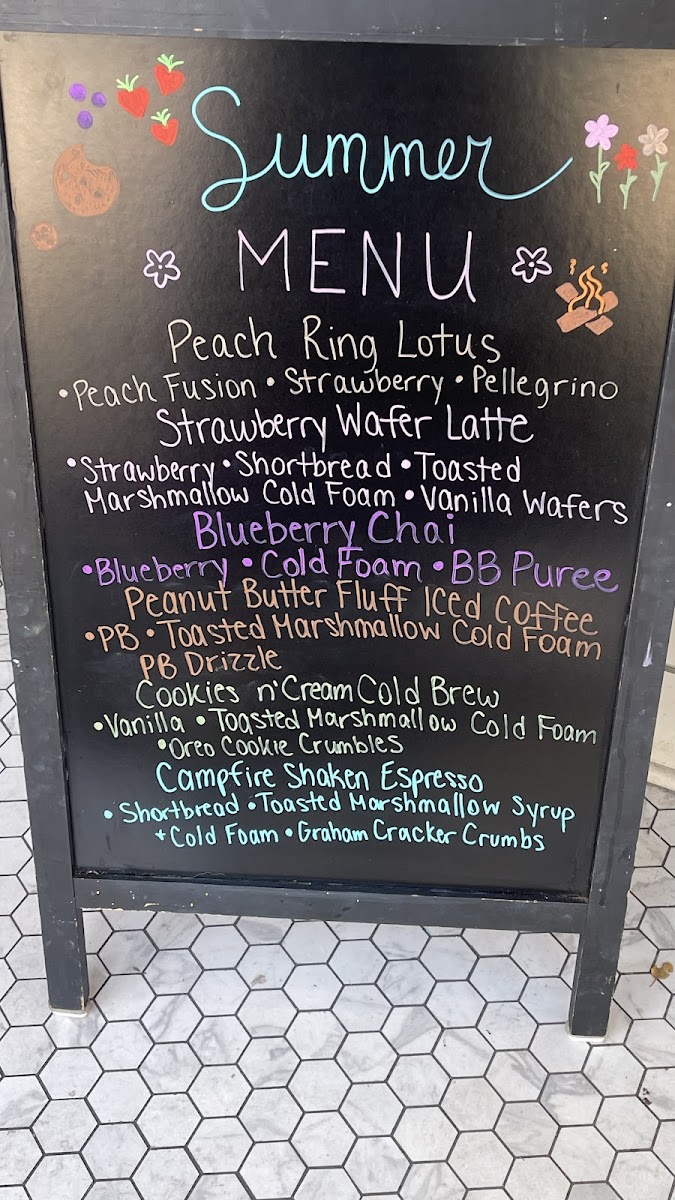 Summer
MENU
Peach Ring Lotus
•Peach Fusion • Strawberry • Pellegrino
Strawberry Wafer Latte
•Strawberry • Shortbread • Toasted
Marshmallow Cold Foam • Vanilla Wafers
Blueberry Chai
•Blueberry • Cold Foam • BB Puree
Peanut Butter Fluff Iced Coffee
•PB • Toasted Marshmallow Cold Foam
PB Drizzle
Cookies n' Cream Cold Brew
•Vanilla • Toasted Marshmallow Cold Foam
•Oreo Cookie Crumbles
Campfire Shaken Espresso
• Shortbread • Toasted Marshmallow Syrup
+ Cold Foam • Graham Cracker Crumbs